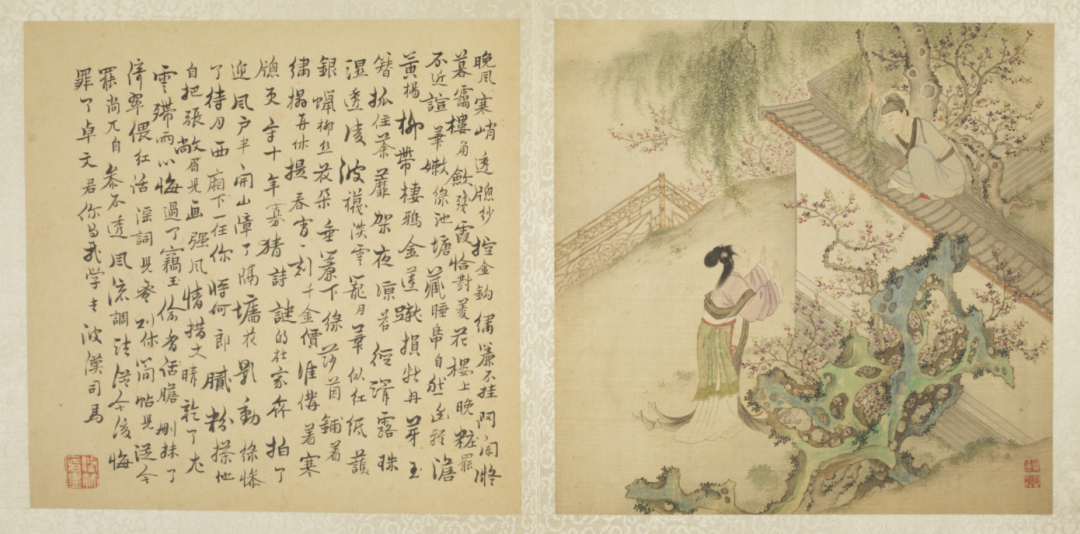 晚風寒峭透牕紗控金鈎繡簾不挂門闌凝
暮靄樓角斂殘霞恰對菱花樓上晚粧罷
不近諠華嫩綠池塘藏睡鴨自然幽雅澹
黃楊柳帶棲鴉金蓮蹴損牡丹芽玉
簪抓住荼蘼架夜凉苔徑滑露珠
溼透凌波襪淡雲籠月華似紅紙護
銀蠟柳絲花朵垂簾下綠莎茵鋪着
繡榻再休提春宵一刻千金價准備着寒
牕更守十年寡猜詩謎的社家拍了
迎風戶半開山障了隔墻花影動綠慘
了待月西廂下一任你將何郎膩粉搽他
自把張敞眉兒畫强風情措大晴乾了尤
雲殢雨心悔過了竊玉偷香膽刪抹了
倚翠偎紅話淫詞兒早則休簡帖兒從今
罷尚兀自參不透風流調法從今後悔
罪了卓文君你與我學去波漢司馬